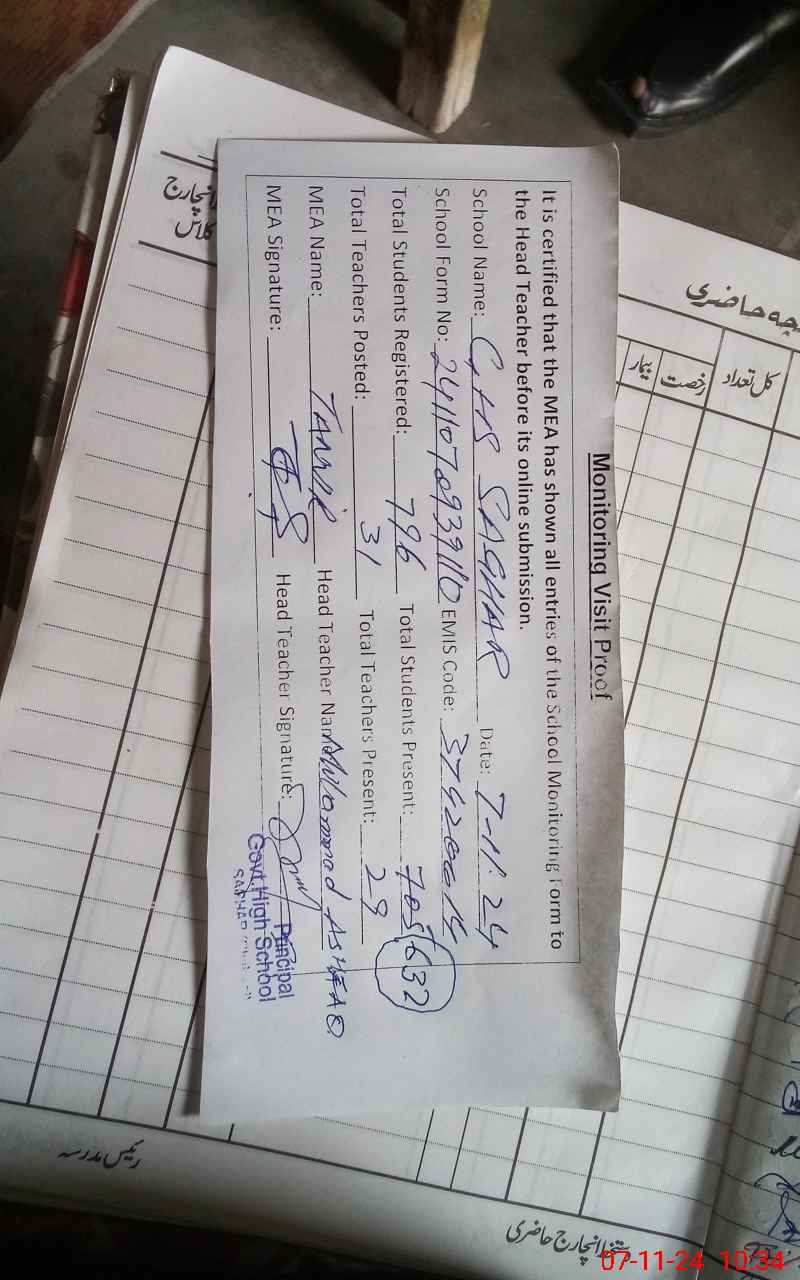 Monitoring Visit Proof
It is certified that the MEA has shown all entries of the School Monitoring Form to
the Head Teacher before its online submission.
School Name: GHS SAGHAR Date: 7-11-24
School Form No: EMIS Code:
Total Students Registered: 796 Total Students Present: 705/632
Total Teachers Posted: 31 Total Teachers Present: 29
MEA Name: TANVIR Head Teacher Nam Muhammad ASHFAQ
MEA Signature: Head Teacher Signature:
Principal
Govt. High School
انچارج
کلاس
چہ حاضری
کل تعداد
رخصت
بیمار
رئیس مدرسہ
انچارج حاضری
07-11-24 10:34